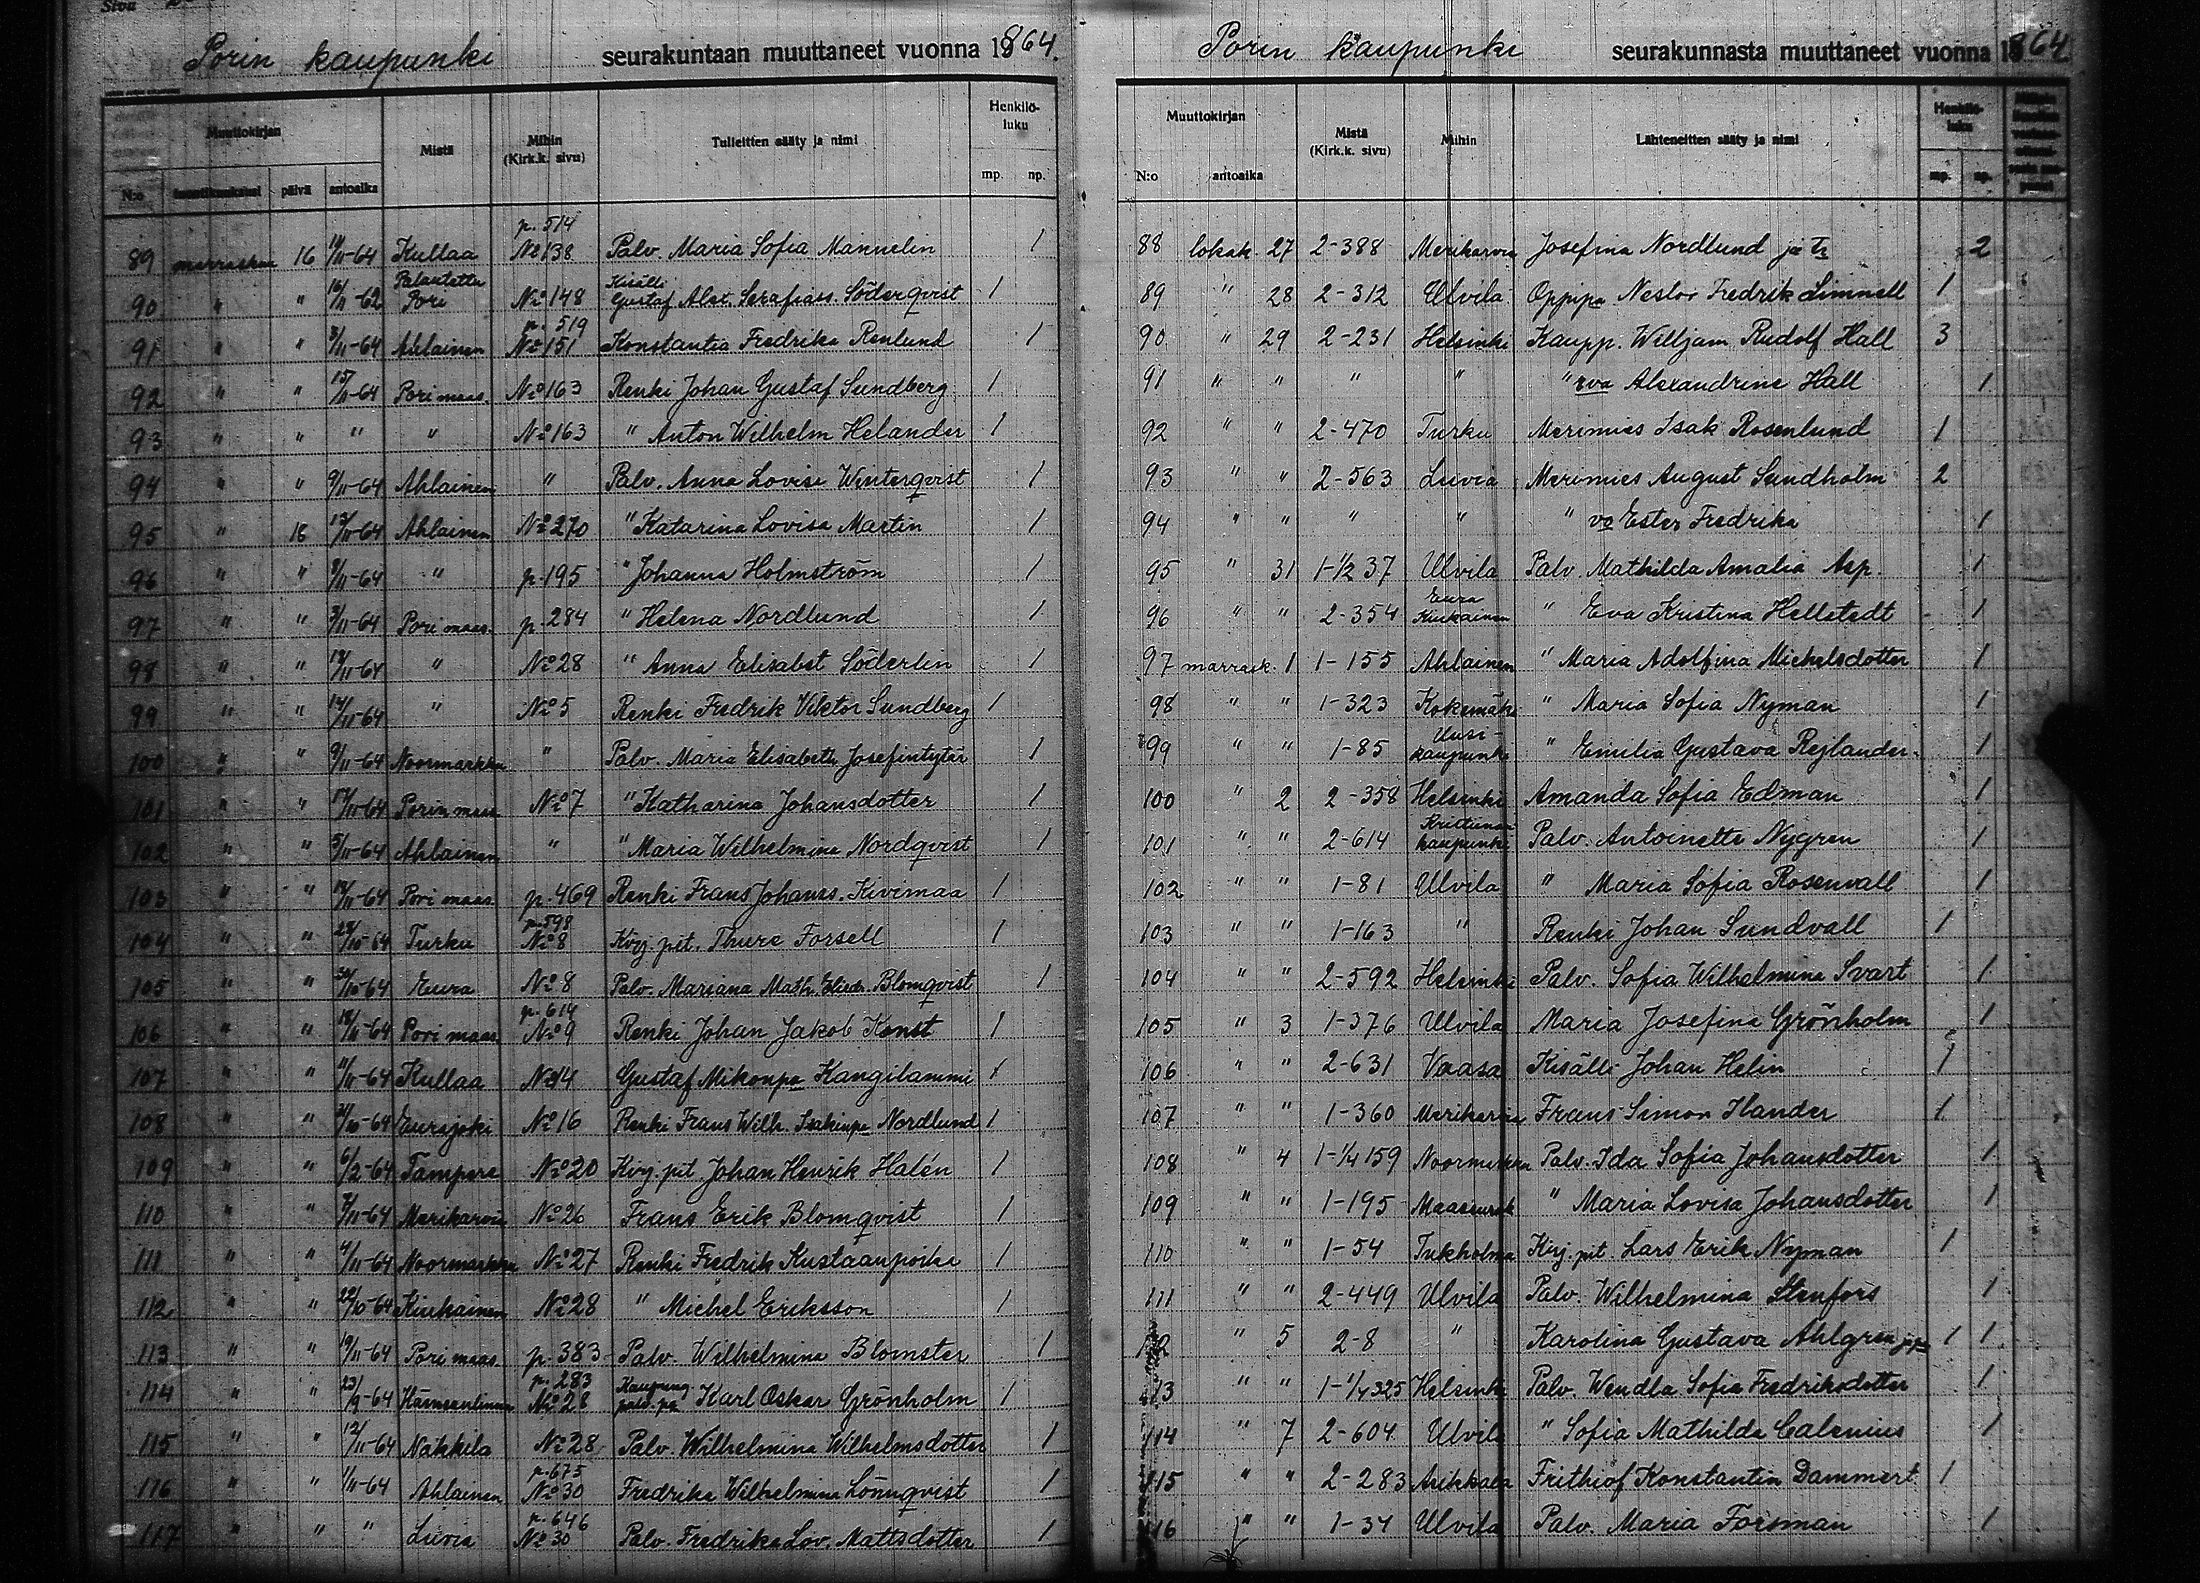 Sivu
Porin kaupunki seurakuntaan muuttaneet vuonna 1864.
Muuttokirjan Mistä Mihin (Kirk.k. sivu) Tulleitten sääty ja nimi Henkilö-luku
N:o päivä antoaika mp. np.
89 marraskuu 16 /11-64 Kullaa p. 514 No 138 Palv. Maria Sofia Mannelin 1
90 " " 16/11-62 Palautettu Pori No 148 Kisälli Gustaf Alex. Serafiass. Söderqvist 1
91 " " 3/11-64 Ahlainen p. 519 No 151 Konstantia Fredrika Renlund 1
92 " " 15/11-64 Pori maas. No 163 Renki Johan Gustaf Sundberg 1
93 " " " " No 163 " Anton Wilhelm Helander 1
94 " " 9/11-64 Ahlainen " Palv. Anna Lovisa Winterqvist 1
95 " 16 12/11-64 Ahlainen No 270 " Katarina Lovisa Martin 1
96 " " /11-64 " p. 195 " Johanna Holmström 1
97 " " 3/11-64 Pori maas. p. 284 " Helena Nordlund 1
98 " " 12/11-64 " No 28 " Anna Elisabet Söderlin 1
99 " " 14/11-64 " No 5 Renki Fredrik Viktor Sundberg 1
100 " " 9/11-64 Noormarkku " Palv. Maria Elisabeth Josefintytär 1
101 " " /11-64 Porin maas No 7 " Katharina Johansdotter 1
102 " " 5/11-64 Ahlainen " " Maria Wilhelmina Nordqvist 1
103 " " /11-64 Pori maas. p. 469 Renki Frans Johanss. Kivimaa 1
104 " " /10-64 Turku p. 598 No 8 Kirj. pit. Thure Forsell 1
105 " " /10-64 Eura No 8 Palv. Mariana Math. Elisab. Blomqvist 1
106 " " /11-64 Pori maas. p. 614 No 9 Renki Johan Jakob Konst 1
107 " " 11/11-64 Kullaa No 14 Gustaf Mikonpa Kangilammi 1
108 " " 21/10-64 Eurajoki No 16 Renki Frans Wilh. Isakinpa Nordlund 1
109 " " 6/2-64 Tampere No 20 Kirj. pit. Johan Henrik Halén 1
110 " " /11-64 Merikarvia No 26 Frans Erik Blomqvist 1
111 " " 4/11-64 Noormarkku No 27 Renki Fredrik Kustaanpoika 1
112 " " 22/10-64 Kiukainen No 28 " Michel Eriksson 1
113 " " 19/11-64 Pori maas. p. 383 Palv. Wilhelmina Blomster 1
114 " " 23/9-64 Hämeenlinna p. 283 No 28 Kaupung palv. pa Karl Oskar Grönholm 1
115 " " 12/11-64 Nakkila No 28 Palv. Wilhelmina Wilhelmsdotter 1
116 " " 1/11-64 Ahlainen p. 675 No 30 Fredrika Wilhelmina Lönnqvist 1
117 " " " Luvia p. 646 No 30 Palv. Fredrika Lov. Mattsdotter 1
Porin kaupunki seurakunnasta muuttaneet vuonna 1864
Muuttokirjan Mistä (Kirk.k. sivu) Mihin Lähteneitten sääty ja nimi Henkilö-luku
N:o antoaika mp. np.
88 lokak. 27 2-388 Merikarvia Josefina Nordlund ja tr 2
89 " 28 2-312 Ulvila Oppipa Nestor Fredrik Limnell 1
90 " 29 2-231 Helsinki Kaupp. Willijam Rudolf Hall 3
91 " " " " " rva Alexandrine Hall 1
92 " " 2-470 Turku Merimies Isak Rosenlund 1
93 " " 2-563 Luvia Merimies August Sundholm 2
94 " " " " " vo Ester Fredrika 1
95 " 31 1-1/2 37 Ulvila Palv. Mathilda Amalia Asp. 1
96 " " 2-354 Eura Kiukainen " Eva Kristina Hellstedt 1
97 marrask. 1 1-155 Ahlainen " Maria Adolfina Michelsdotter 1
98 " " 1-323 Kokemäki " Maria Sofia Nyman 1
99 " " 1-85 Uusi-kaupunki " Emilia Gustava Rejlander 1
100 " 2 2-358 Helsinki Amanda Sofia Edman 1
101 " " 2-614 Kristiinan kaupunki Palv. Antoinette Nygren 1
102 " " 1-81 Ulvila " Maria Sofia Rosenvall 1
103 " " 1-163 " Renki Johan Sundvall 1
104 " " 2-592 Helsinki Palv. Sofia Wilhelmina Svart 1
105 " 3 1-376 Ulvila Maria Josefina Grönholm 1
106 " " 2-631 Vaasa Kisälli Johan Helin 1
107 " " 1-360 Merikarvia Frans Simon Ilander 1
108 " 4 1-1/4 159 Noormarkku Palv. Ida Sofia Johansdotter 1
109 " " 1-195 Maaseurak " Maria Lovisa Johansdotter 1
110 " " 1-54 Tukholma Kirj. pit. Lars Erik Nyman 1
111 " " 2-449 Ulvila Palv. Wilhelmina Stenfors 1
112 " 5 2-8 " Karolina Gustava Ahlgren 1 1
113 " " 1-1/4 325 Helsinki Palv. Wendla Sofia Fredriksdotter 1
114 " 7 2-604 Ulvila " Sofia Mathilda Calenius 1
115 " " 2-283 Asikkala Frithiof Konstantin Dammert 1
116 " " 1-34 Ulvila Palv. Maria Forsman 1